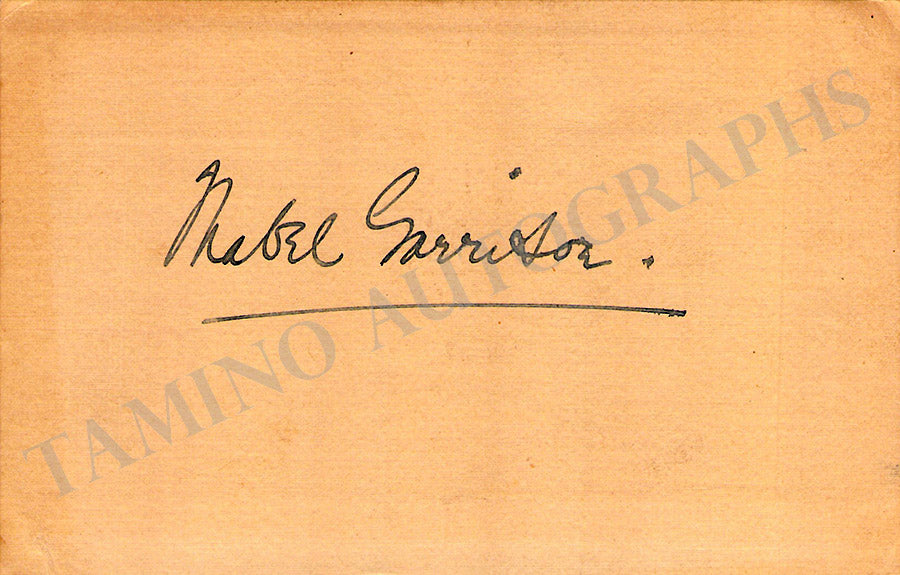 Mabel Garrison.
TAMINO AUTOGRAPHS